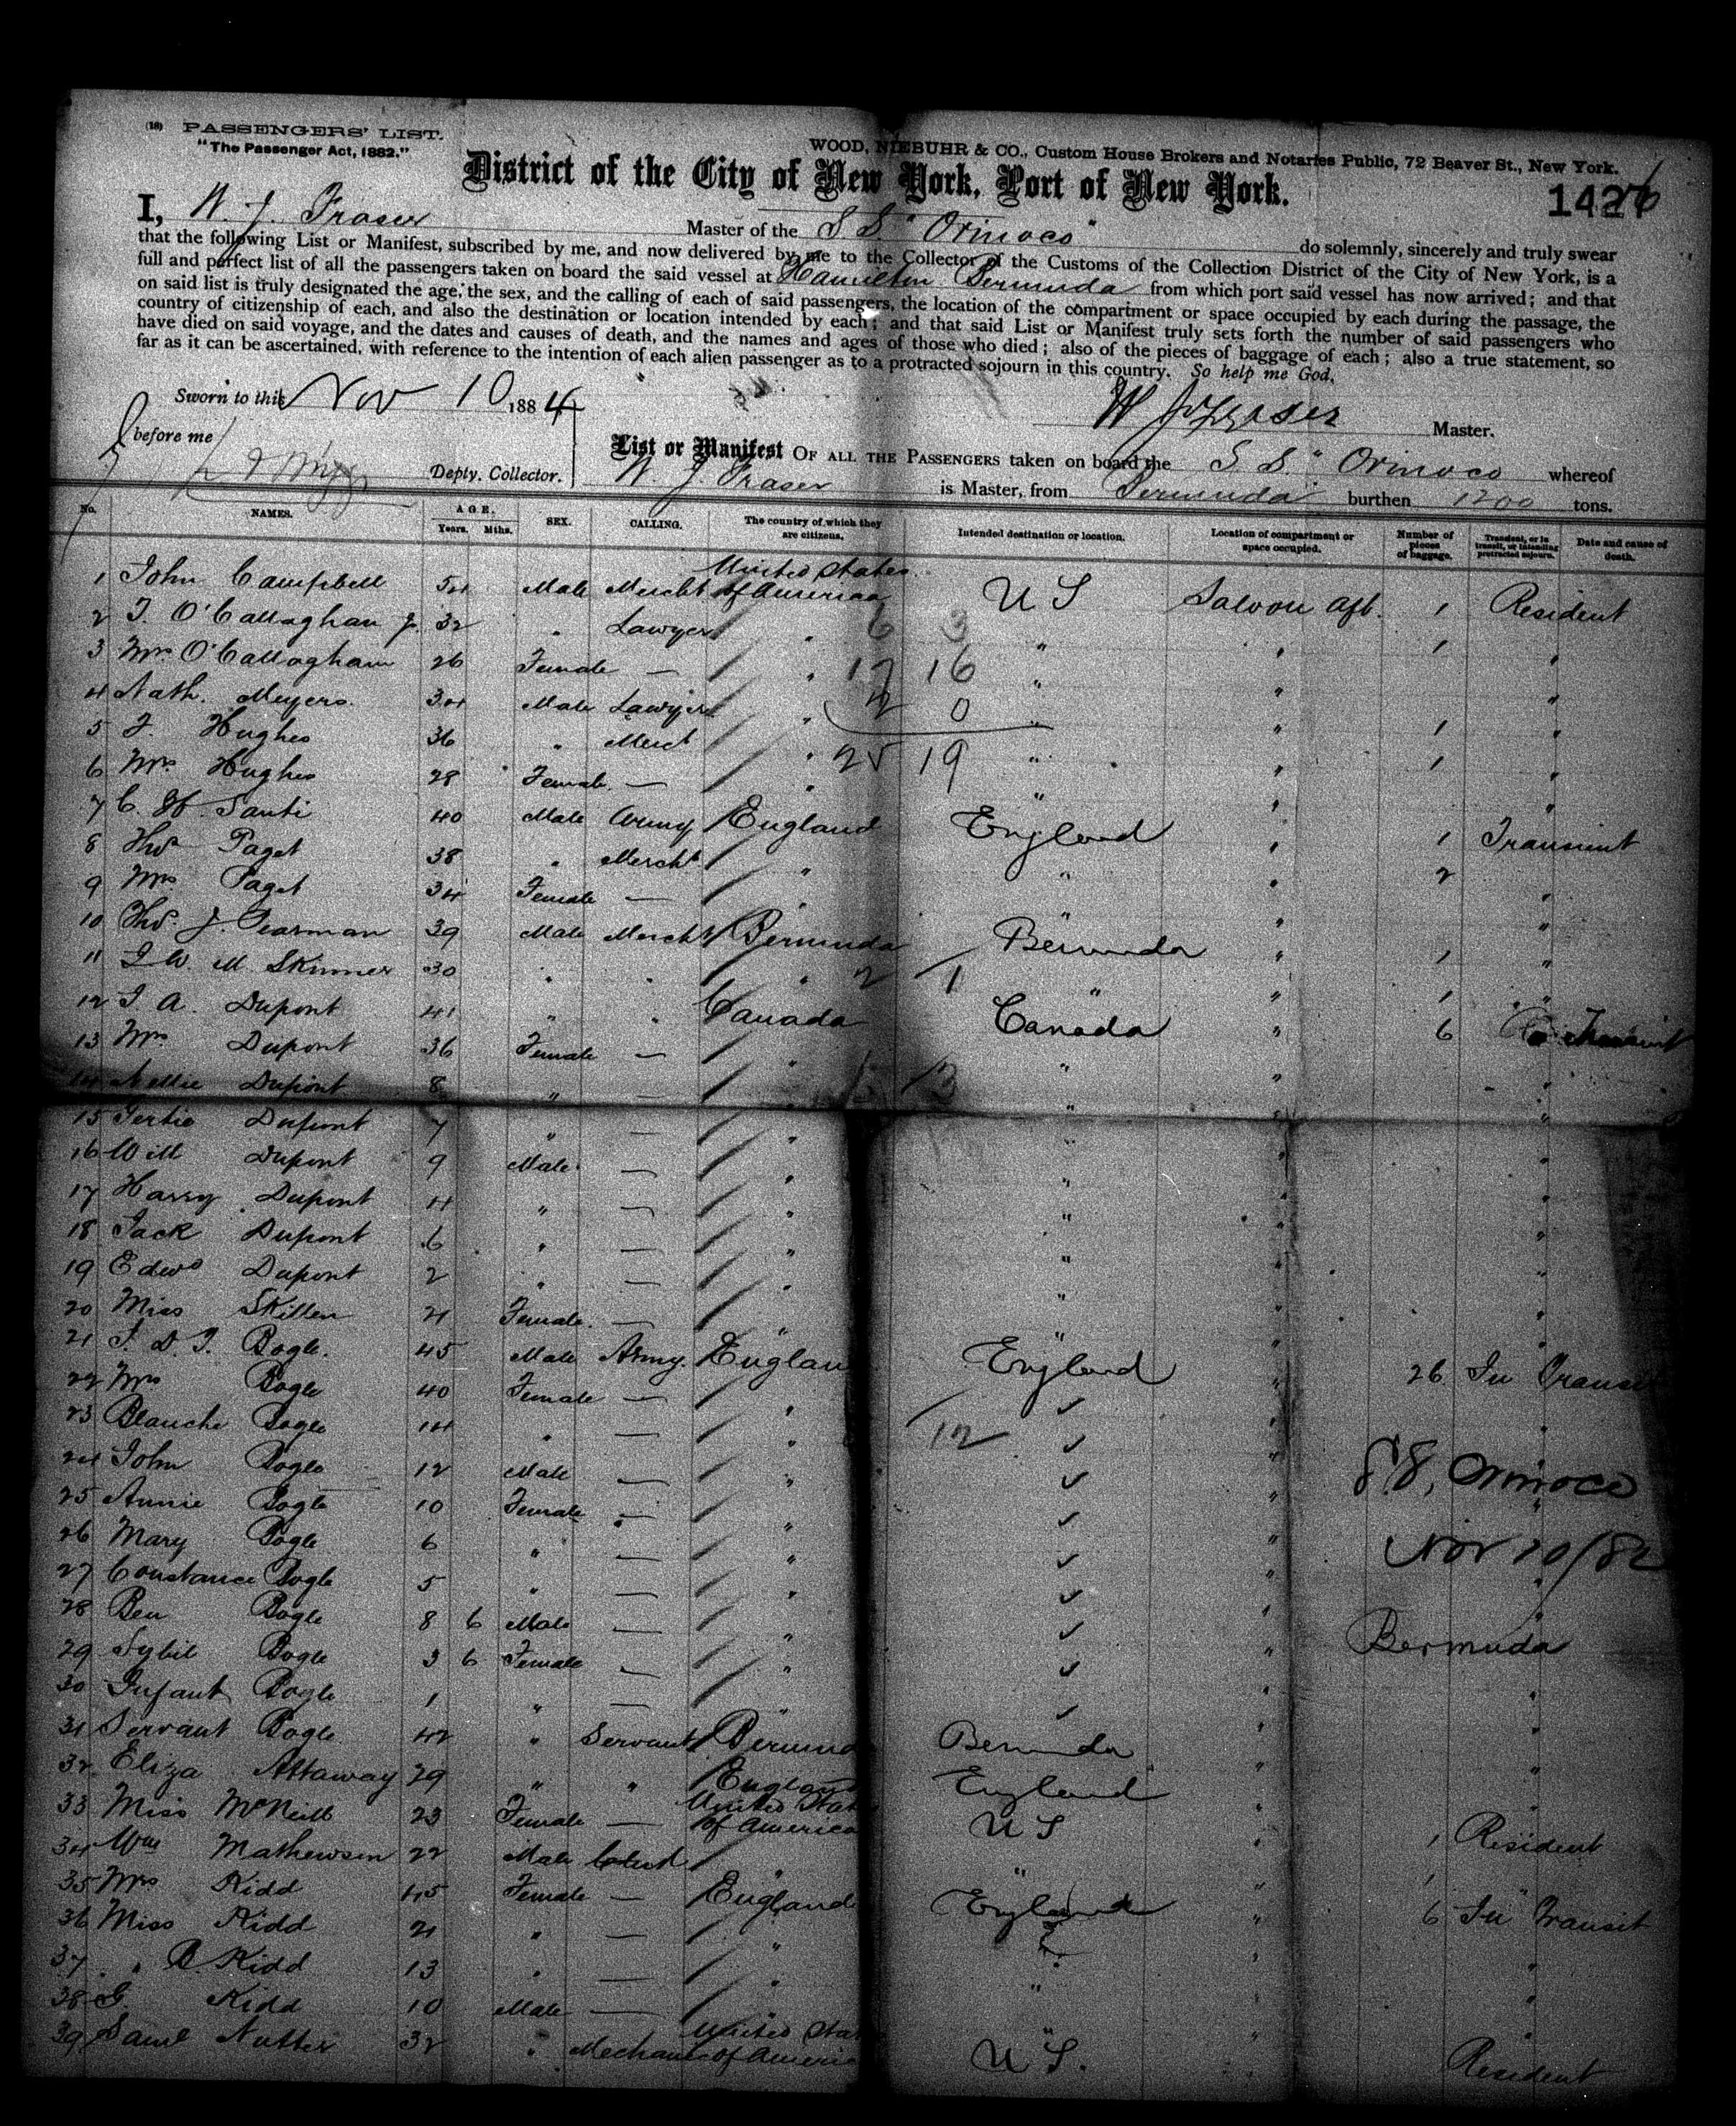 (18) PASSENGERS' LIST.
"The Passenger Act, 1882."
WOOD, NIEBUHR & CO., Custom House Brokers and Notaries Public, 72 Beaver St., New York.
District of the City of New York, Port of New York.
1427
I, W. J. Fraser Master of the S S "Orinoco" do solemnly, sincerely and truly swear
that the following List or Manifest, subscribed by me, and now delivered by me to the Collector of the Customs of the Collection District of the City of New York, is a
full and perfect list of all the passengers taken on board the said vessel at Hamilton Bermuda from which port said vessel has now arrived; and that
on said list is truly designated the age, the sex, and the calling of each of said passengers, the location of the compartment or space occupied by each during the passage, the
country of citizenship of each, and also the destination or location intended by each; and that said List or Manifest truly sets forth the number of said passengers who
have died on said voyage, and the dates and causes of death, and the names and ages of those who died; also of the pieces of baggage of each; also a true statement, so
far as it can be ascertained, with reference to the intention of each alien passenger as to a protracted sojourn in this country. So help me God.
Sworn to this Nov 10 1884
W J Fraser Master.
before me
Depty. Collector.
List or Manifest OF ALL THE PASSENGERS taken on board the S S "Orinoco whereof
W. J Fraser is Master, from Bermuda burthen 1200 tons.
No. NAMES. AGE. Years. Mths. SEX. CALLING. The country of which they are citizens. Intended destination or location. Location of compartment or space occupied. Number of pieces of baggage. Transient, or in transit, or intending protracted sojourn. Date and cause of death.
1 John Campbell 54 Male Mercht United States of America U S Saloon Aft. 1 Resident
2 T. O'Callaghan Jr. 32 " Lawyer " 6 3 " " 1 "
3 Mrs O'Callagham 26 Female — " 17 16 " " "
4 Nath. Meyers. 34 Male Lawyer " 2 0 " " 1 "
5 J. Hughes 36 " Merct " 25 19 " " 1 "
6 Mrs Hughes 28 Female. — " " " "
7 C. H. Santi 40 Male Army England England " 1 Transient
8 Thos Paget 38 " Mercht " " " 2 "
9 Mrs Paget 34 Female — " " " "
10 Thos. J. Pearman 39 Male Mercht Bermuda Bermuda " 1 "
11 J. W. M. Skinner 30 " " " 2 1 " " 1 "
12 J A. Dupont 41 " " Canada Canada " 6 Transient
13 Mrs Dupont 36 Female — " " " "
14 Nellie Dupont 8 " — " 13 " " "
15 Gertie Dupont 7 " — " " " "
16 Will Dupont 9 Male — " " " "
17 Harry Dupont 4 " — " " " "
18 Jack Dupont 6 " — " " " "
19 Edwd Dupont 2 " — " " " "
20 Miss Skitten 21 Female. — " " " "
21 J. D. T. Bogle. 45 Male Army. England England " 26 In Transit
22 Mrs Bogle 40 Female — " ✓ " "
23 Blanche Bogle 14 " — " 12 ✓ "
24 John Bogle 12 Male — " ✓ " S.S. Orinoco
25 Annie Bogle 10 Female — " ✓ "
26 Mary Bogle 6 " — " ✓ " Nov 10/82
27 Constance Bogle 5 " — " ✓ "
28 Ben Bogle 8 6 Male — " ✓ " Bermuda
29 Sybil Bogle 3 6 Female — " ✓ "
30 Infant Bogle 1 " — ✓ " "
31 Servant Bogle 42 " Servant Bermuda Bermuda " "
32 Eliza Attaway 29 " " England England " "
33 Miss McNeill 23 Female — United States of America U S " 1 Resident
34 Wm Mathewson 22 Male Clerk " " " 1 "
35 Mrs Kidd 45 Female — England England " 6 In Transit
36 Miss Kidd 21 " — " " "
37 " B. Kidd 13 " — " " " "
38 G. Kidd 10 Male — " " "
39 Saml Nutter 32 " Mechanic United States of America U S. " Resident